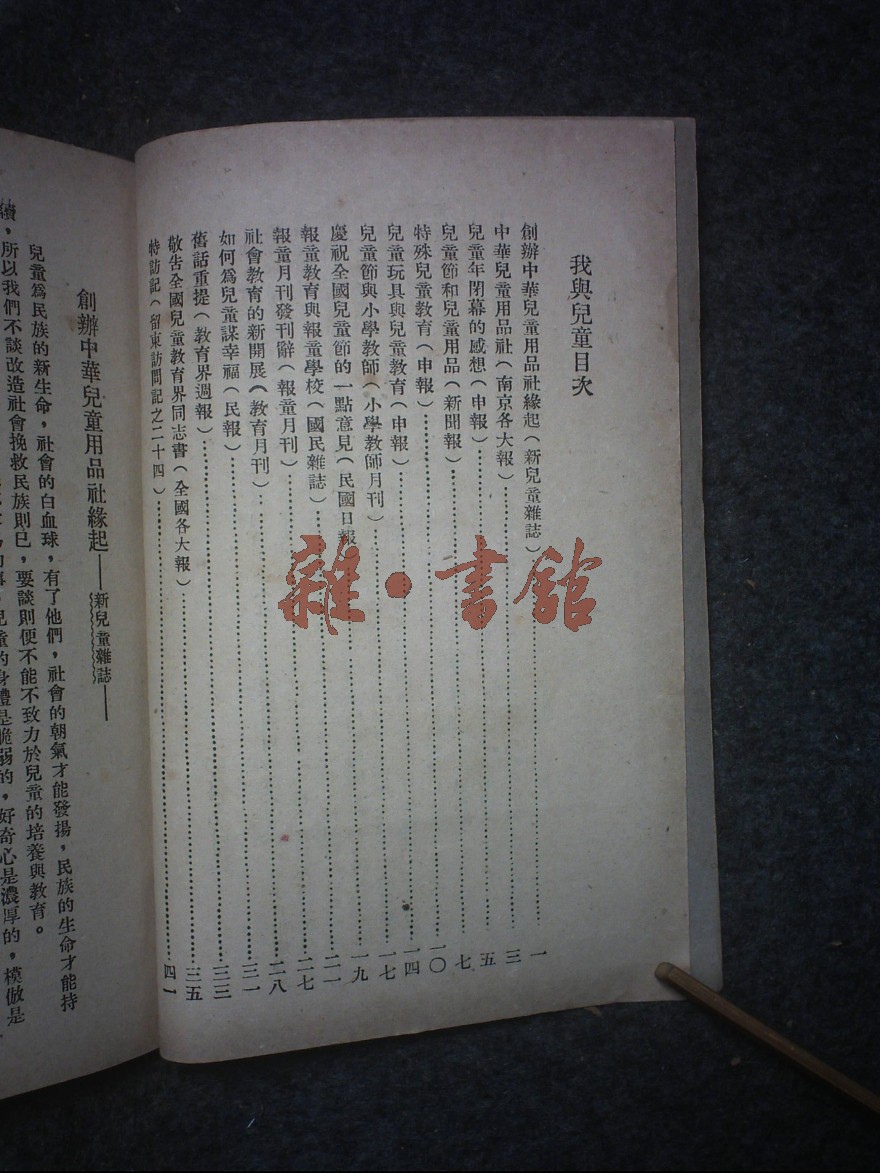 我與兒童目次
創辦中華兒童用品社緣起(新兒童雜誌)……一
中華兒童用品社(南京各大報)……三
兒童年閉幕的感想(申報)……五
兒童節和兒童用品(新聞報)……七
特殊兒童教育(申報)……一〇
兒童玩具與兒童教育(申報)……一四
兒童節與小學教師(小學教師月刊)……一七
慶祝全國兒童節的一點意見(民國日報)……一九
報童教育與報童學校(國民雜誌)……二一
報童月刊發刊辭(報童月刊)……二七
社會教育的新開展(教育月刊)……二八
如何爲兒童謀幸福(民報)……三一
舊話重提(教育界週報)……三三
敬告全國兒童教育界同志書(全國各大報)……三五
特訪記(留東訪問記之二十四)……四一
雜·書館
創辦中華兒童用品社緣起——新兒童雜誌——
兒童爲民族的新生命,社會的白血球,有了他們,社會的朝氣才能發揚,民族的生命才能持
續,所以我們不談改造社會挽救民族則已,要談則便不能不致力於兒童的培養與教育。
兒童的身體是脆弱的,好奇心是濃厚的,模倣是